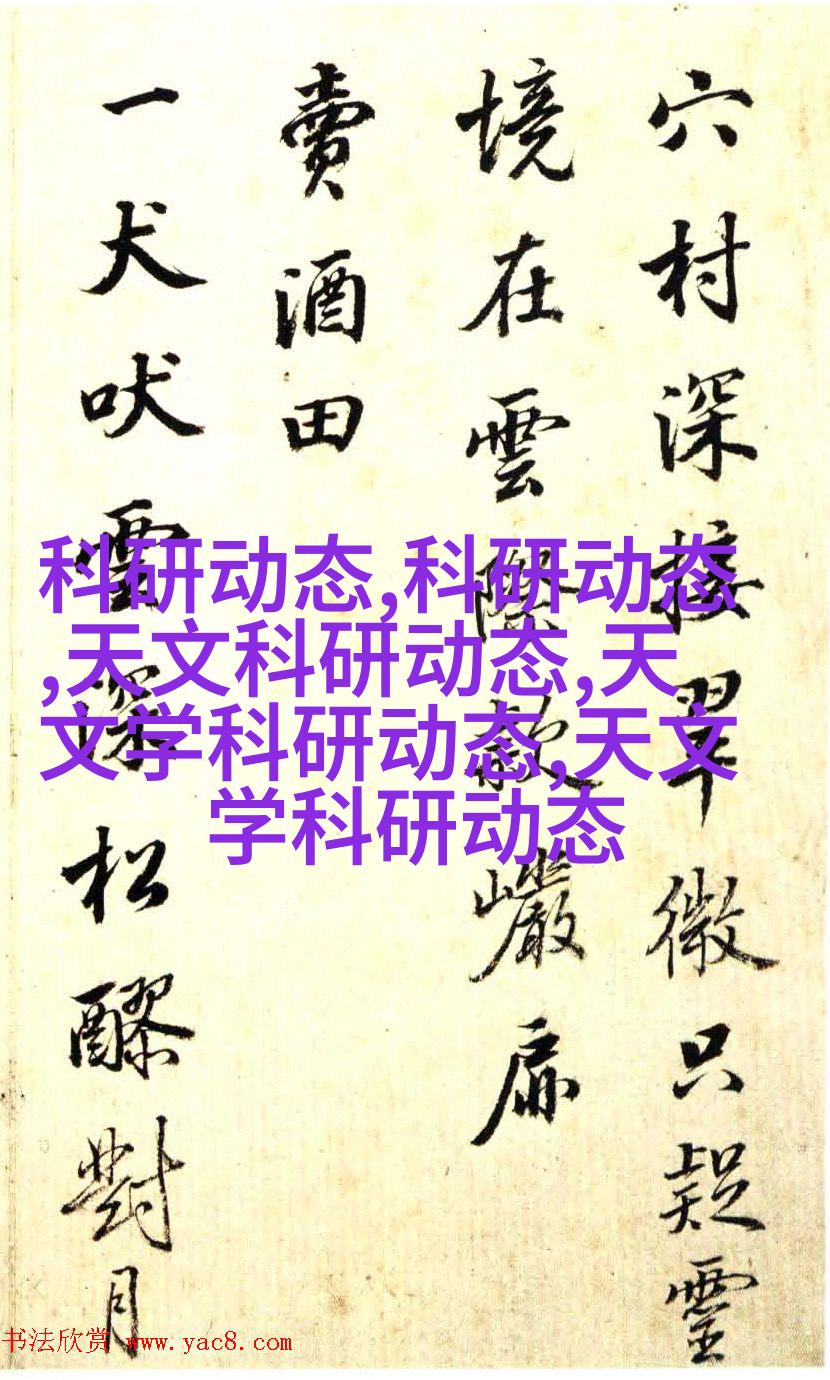 穴村深接翠微只疑靈
境在雲際款巖扉
賣酒田
一犬吠雲深松醪對月
科研动态,科研动态
,天文科研动态,天
文学科研动态,天文
学科研动态
书法欣赏 www.yac8.com